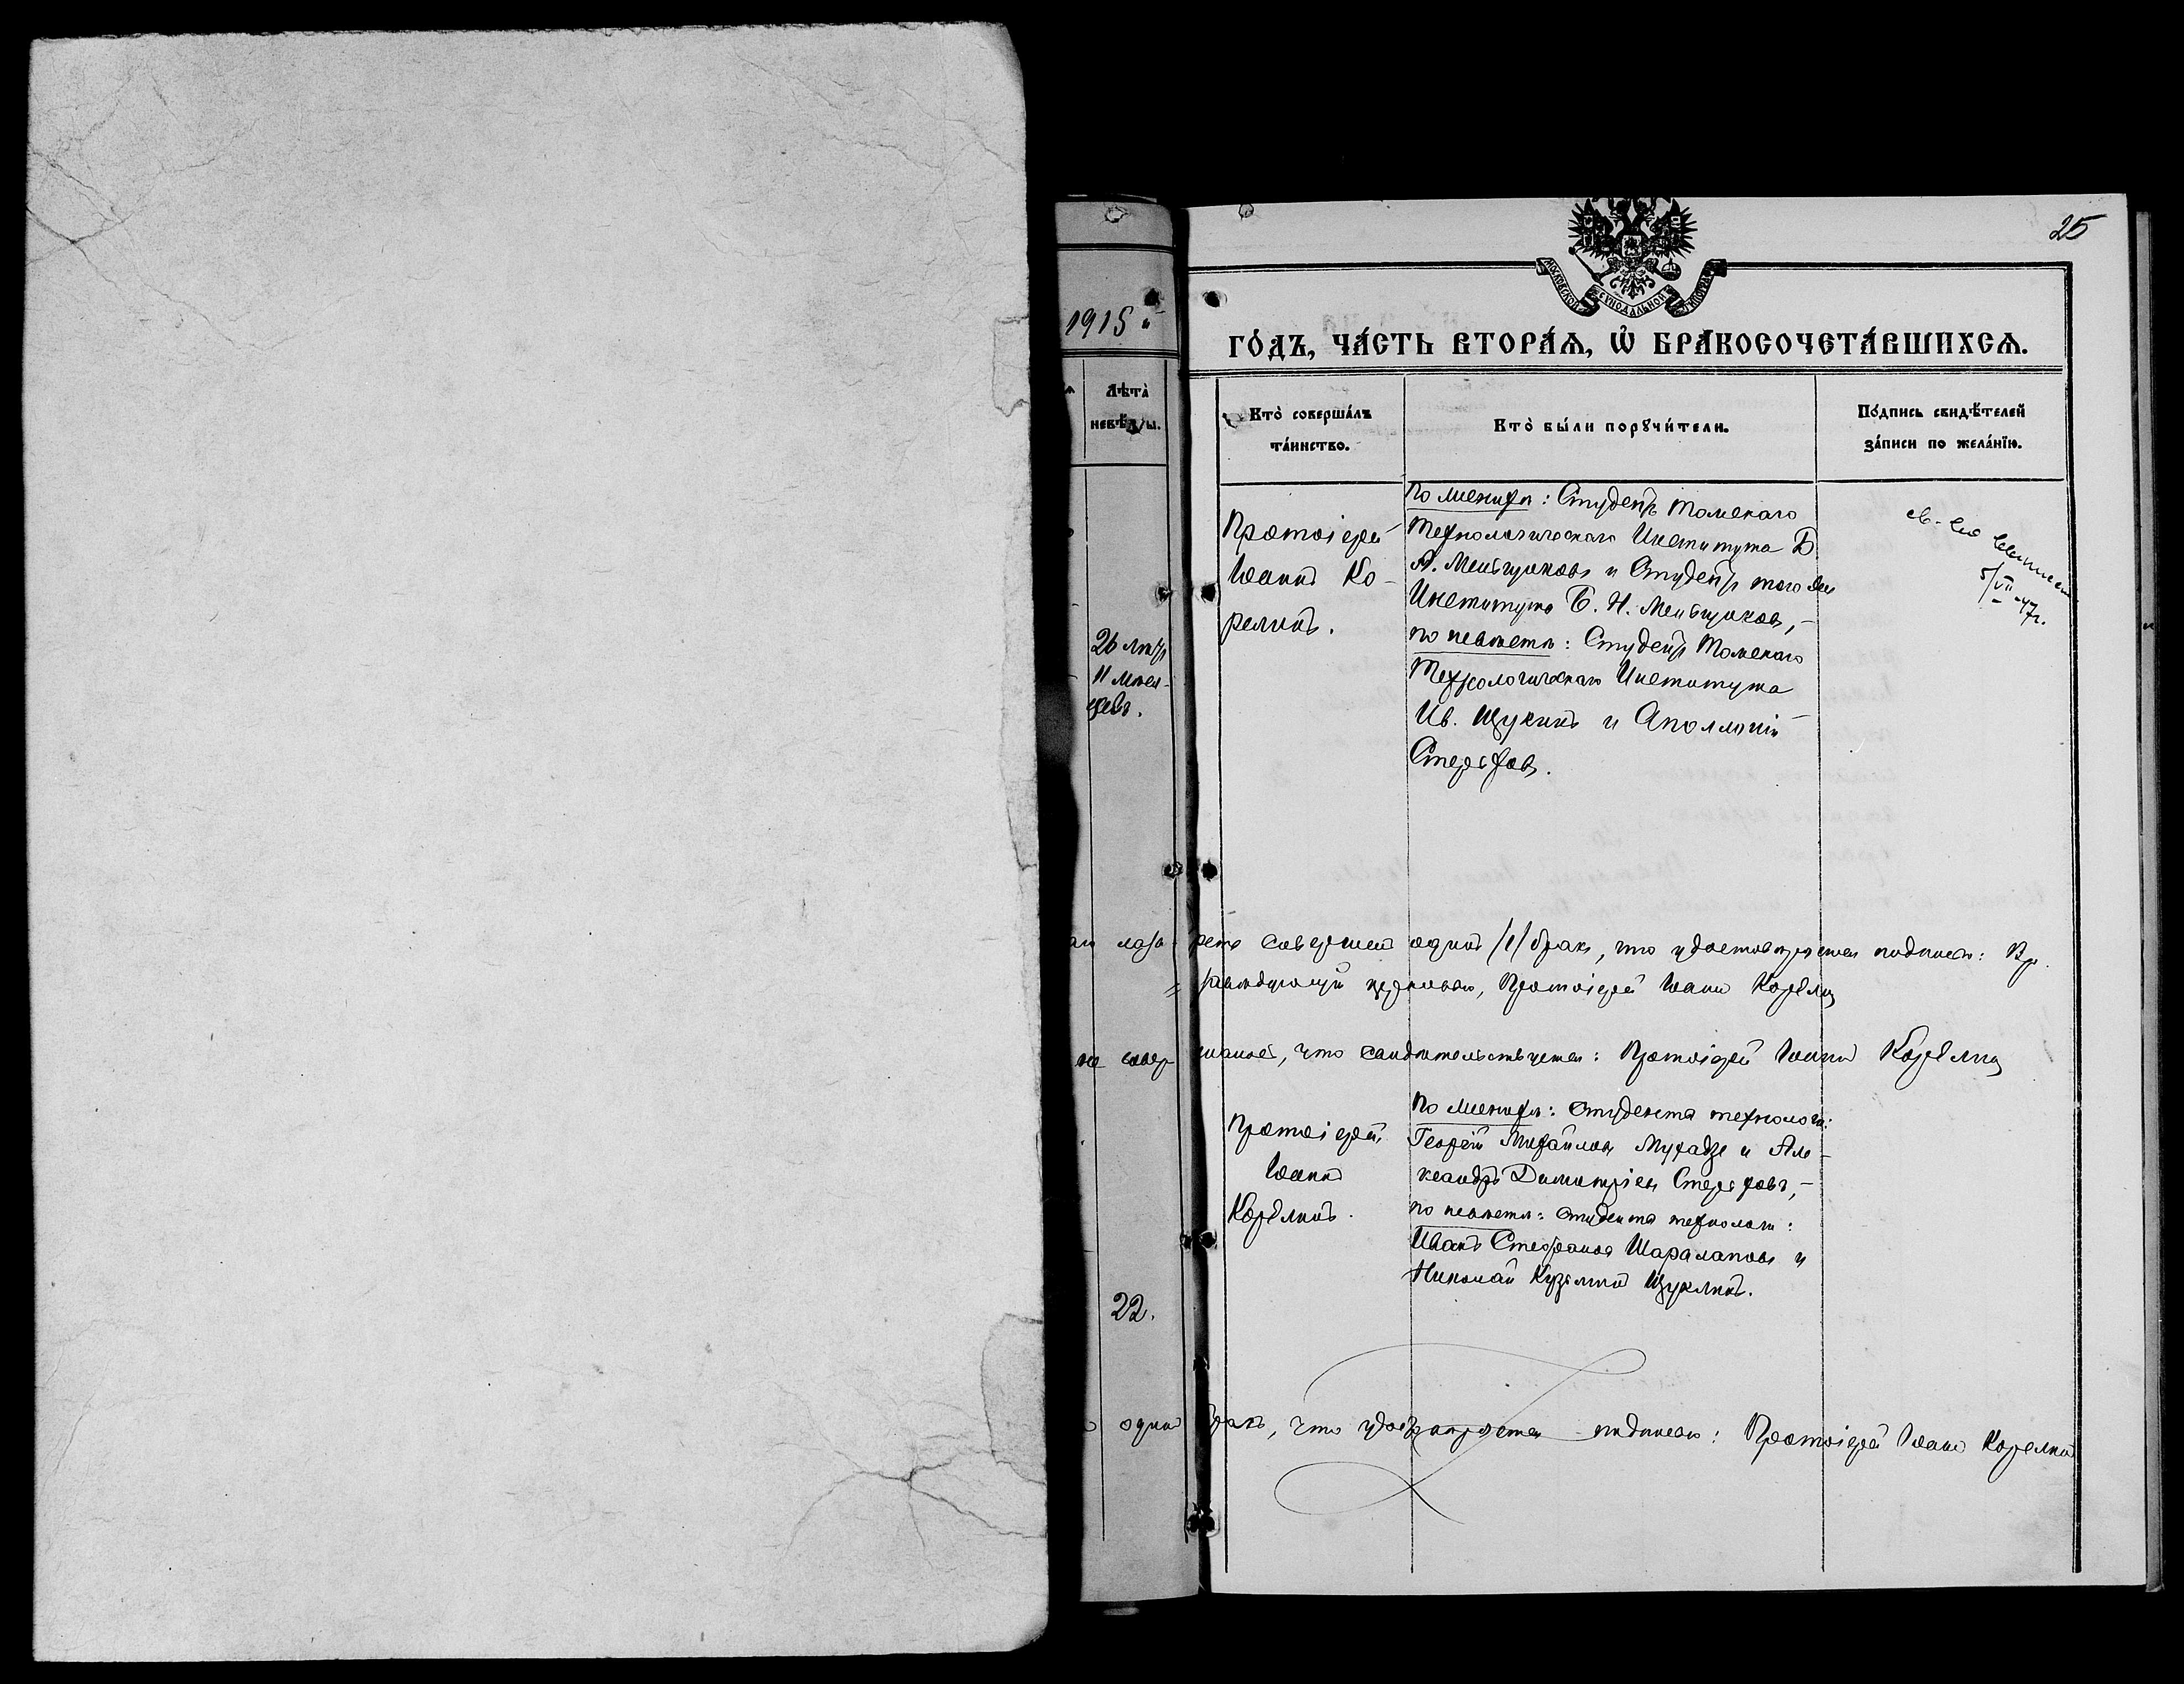 25
МОСКОВСКОЙ СѴНОДАЛЬНОЙ ТИПОГРАФІИ
1915 й
ГО́ДЪ, ЧА́СТЬ ВТОРА́Ѧ, Ѡ҆ БРАКОСОЧЕТА́ВШИХСѦ.
Лѣта̀
невѣ́сты.
Кто̀ соверша́лъ
та́инство.
Кто̀ бы́ли порꙋчи́тели.
По́дпись свидѣ́телей
за́писи по жела́нїю.
26 лѣтъ
11 мѣся-
цевъ.
Протоіерей
Іоаннъ Ко-
релинъ.
По женихѣ: Студентъ Томскаго
Технологическаго Института Б
А. Меньщиковъ и Студентъ того же
Института Б. Н. Меньщиковъ,-
по невѣстѣ: Студентъ Томскаго
Технологическаго Института
Ив. Щукинъ и Аполлоній
5/VII-47г.
лаза-
ретѣ совершенъ одинъ /1/ бракъ, что удостовѣряется подписью: Вр.
завѣдующій церковью, Протоіерей Іоаннъ Корелинъ
не совер-
шалось, что свидѣтельствуется: Протоіерей Іоаннъ Корелинъ
Протоіерей
Іоаннъ
Корелинъ.
По женихѣ: студенты технологи:
Георгій Михайловъ и Але-
ксандръ Димитріевъ
по невѣстѣ: студенты технологи:
Иванъ Стефановъ Шараповъ и
Николай Кузьминъ Щукинъ.
22.
одинъ бракъ, что удостовѣряется подписью: Протоіерей Іоаннъ Корелинъ